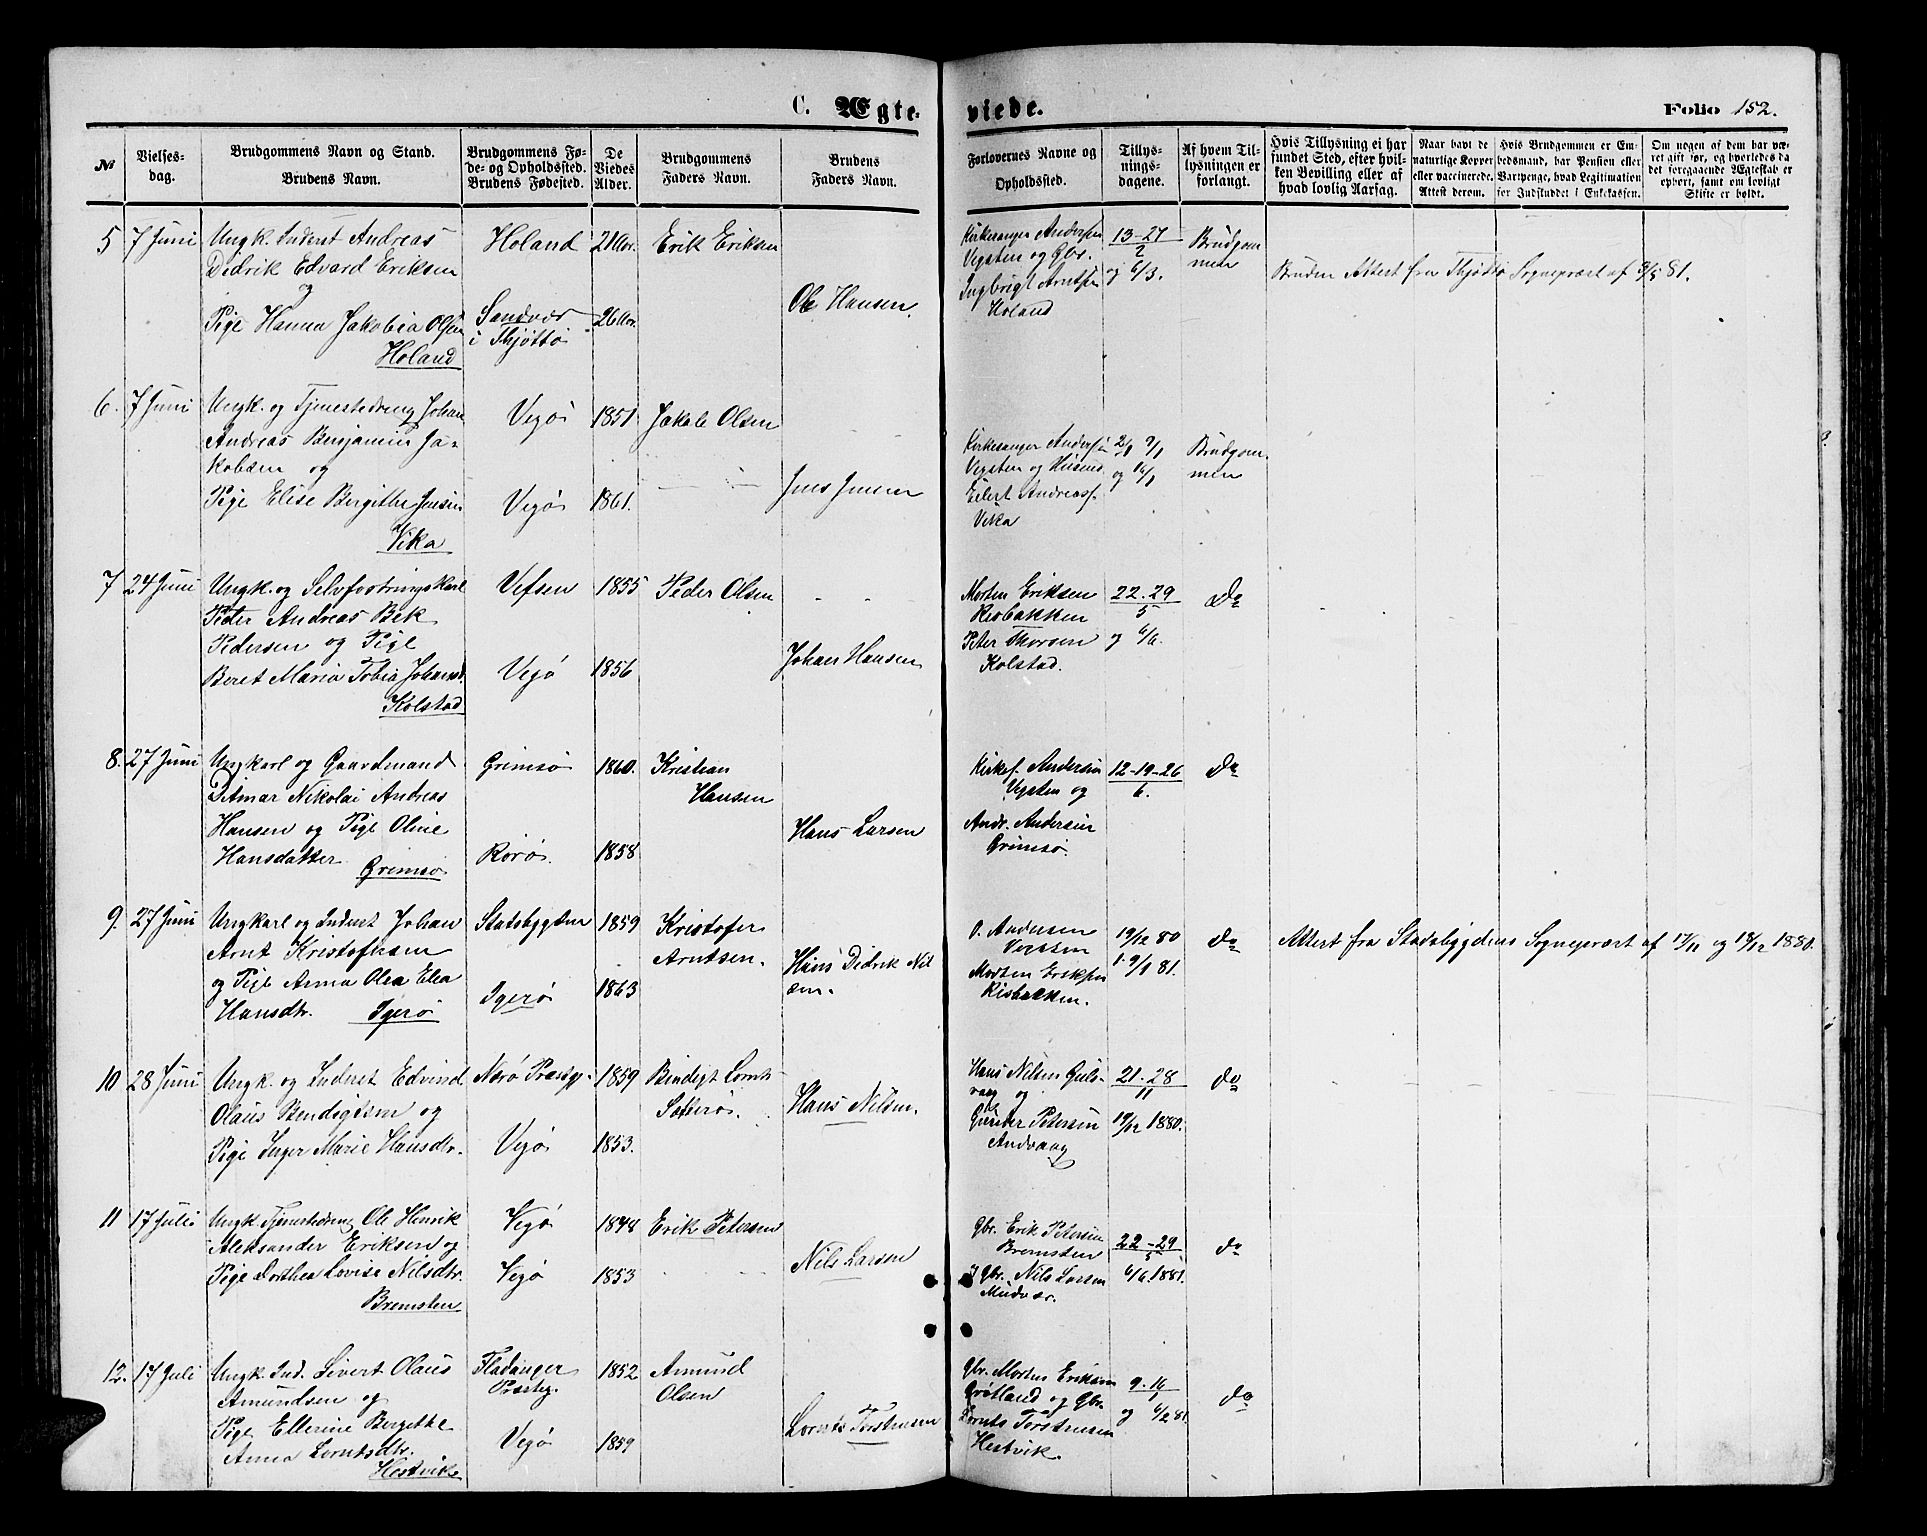 C. Ægte-
viede.
Folio 152.
№
Vielses-
dag.
Brudgommens Navn og Stand.
Brudens Navn.
Brudgommens Fø-
de- og Opholdssted.
Brudens Fødested.
De
Viedes
Alder.
Brudgommens
Faders Navn.
Brudens
Faders Navn.
Forlovernes Navne og
Opholdssted.
Tillys-
nings-
dagene.
Af hvem Til-
lysningen er
forlangt.
Hvis Tillysning ei har
fundet Sted, efter hvil-
ken Bevilling eller af
hvad lovlig Aarsag.
Naar havt de
naturlige Kopper
eller vaccinerede.
Attest derom.
Hvis Brudgommen er Em-
bedsmand, har Pension eller
Vartpenge, hvad Legitimation
for Indskuddet i Enkekassen.
Om nogen af dem har væ-
ret gift før, og hvorledes da
det foregaaende Ægteskab er
ophørt, samt om lovligt
Skifte er holdt.
5 7 Juni Ungk. Inderst Andreas
Didrik Edvard Eriksen
og
Pige Hanna Jakobia Olsen
Holand
Holand 21 Ar. Erik Eriksen
Sandvær
i Thjøttø 26 Ar.
Ole Hansen.
Kirkesanger Andersen
Vegsten og Gbr.
Ingbrigt Arntsen
Holand
13-27
2
og 6/3.
Brudgom
men
Bruden Attest fra Thjøttø Sogneprest af 9/5 81.
6. 7 Juni Ungk. og Tjenestedreng Johan
Andreas Benjamin Ja-
kobsen og
Pige Elise Bergithe Jensen
Vika
Vegø 1851. Jakob Olsen
Vegø 1861.
Jens Jensen
Kirkesanger Andersen
Vegsten og Husmd.
Eilert Andreas.
Vika
2/1 9/1
og 16/1
Brudgom
men
7 24 Juni Ungk. og Selvfostringskarl
Peter Andreas Bek
Pedersen og Pige
Beret Maria Tobia Johansd.
Kolstad
Vefsen 1855 Peder Olsen
Vegø 1856
Johan Hansen
Morten Eriksen
Risbakken
Peter Thorsen
Kolstad.
22. 29
5
og 6/6.
Do
8. 27 Juni Ungkarl og Gaardmand
Ditmar Nikolai Andreas
Hansen og Pige Oline
Hansdatter Grimsø
Grimsø 1860. Kristian
Hansen
Rørø. 1858
Hans Larsen
Kirkes. Andersen
Vegsten og
Andr. Andersen
Grimsø.
12-19-26
6.
do
9. 27 Juni Ungkarl og Inderst Johan
Arnt Kristofersen
og Pige Anna Olea Elea
Hansdtr. Igerø
Stadsbygden 1859 Kristofer
Arntsen.
Igerø 1863
Hans Didrik Nil
sen.
O. Andersen
Vegsten
Morten Eriksen
Risbakken.
19/12 80
9/1 81.
do
Attest fra Stadsbygdens Sogneprest af 17/11 og 18/12 1880.
10 28 Juni Ungk. og Inderst Edvind
Olaus Bendigtsen og
Pige Inger Marie Hansdtr.
Nærø Præstgj. 1859 Bendigt Lornts
Sætterø.
Vegø 1853.
Hans Nilsen.
Hans Nilsen Guls-
vaag og
Gunder Petersen
Andvaag
21. 28
11
19/12 1880.
do
11 17 Juli Ungk. Tjenestedreng Ole Henrik
Aleksander Eriksen og
Pige Dorthea Lovise Nilsdtr.
Bremsten
Vegø 1848 Erik Petersen
Vegø 1853
Nils Larsen
Gbr. Erik Petersen
Bremsten
Gbr. Nils Larsen
Mudvær.
22-29
5
6/6. 1881.
do
12. 17 Juli Ungk. Ind. Sivert Olaus
Amundsen og
Pige Ellerine Bergethe
Anna Lorntsdtr.
Hestvik
Fladanger
Præstg. 1852 Amund
Olsen
Vegø 1859
Lornts Torstensen
Gbr. Morten Eriksen
Grøtland og Gbr.
Lornts Torstensen
Hestvik.
9. 16
1
og 6/2 81.
do